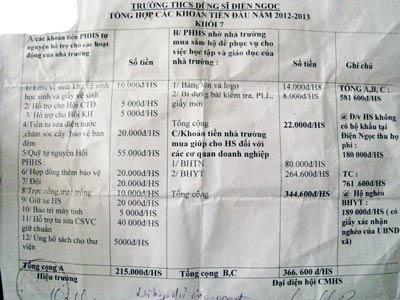 TRƯỜNG THCS DŨNG SĨ ĐIỆN NGỌC
TỔNG HỢP CÁC KHOẢN TIỀN ĐẦU NĂM 2012-2013
KHỐI 7
A/ các khoản tiền PHHS tự nguyện hỗ trợ cho các hoạt động của nhà trường :
Số tiền
B/ PHHS nhờ nhà trường mua sắm hộ để phục vụ cho việc học tập và giáo dục của nhà trường :
Số tiền
Ghi chú
vệ sinh học sinh và giấy vệ sinh
10.000đ/HS
2/ Hỗ trợ cho Hội CTĐ
5 000đ/HS
3/ Hỗ trợ cho Hội KH
5 000đ/HS
4/ Tiền tu sửa điện nước ,chăm sóc cây bảo vệ ban đêm
20.000đ/HS
5/Quỹ tự nguyện Hội PHHS :
55.000đ/HS
6/ Hợp đồng thêm bảo vệ
20.000đ/HS
7/ Đội
20.000đ/HS
8/ Trực cổng trật tự
10.000đ/HS
9/ Giữ xe HS
20 000đ/HS
10/ Bảo trì máy tính
5 000đ/HS
11/ Hỗ trợ tu sửa CSVC giữ chuẩn
40 000đ/HS
12/ Ủng hộ sách cho thư viện
5000đ/HS
Tổng cộng A
215.000đ/HS
Hiệu trưởng
1/ Bảng tên và logo
14.000đ/HS
2/ Bì đựng bài kiểm tra, PLL, giấy mời
8.000đ/HS
Tổng cộng
22.000đ/HS
C/Khoản tiền nhà trường mua giúp cho HS đối với các cơ quan doanh nghiệp
1/ BHTN
80.000đ/HS
2/ BHYT
264.600đ/HS
Tổng cộng
344.600đ/HS
Tổng cộng B,C
366. 600 đ/HS
Đại diện hội CMHS
TỔNG A, B, C :
581 600đ/HS
@ Đ/v HS không có hộ khẩu tại Điện Ngọc thu họ phí :
180 000đ/HS
TC :
761 .600đ/HS
@ Hộ nghèo
BHYT :
189 000đ/HS ( có giấy xác nhận nghèo của UBND xã)